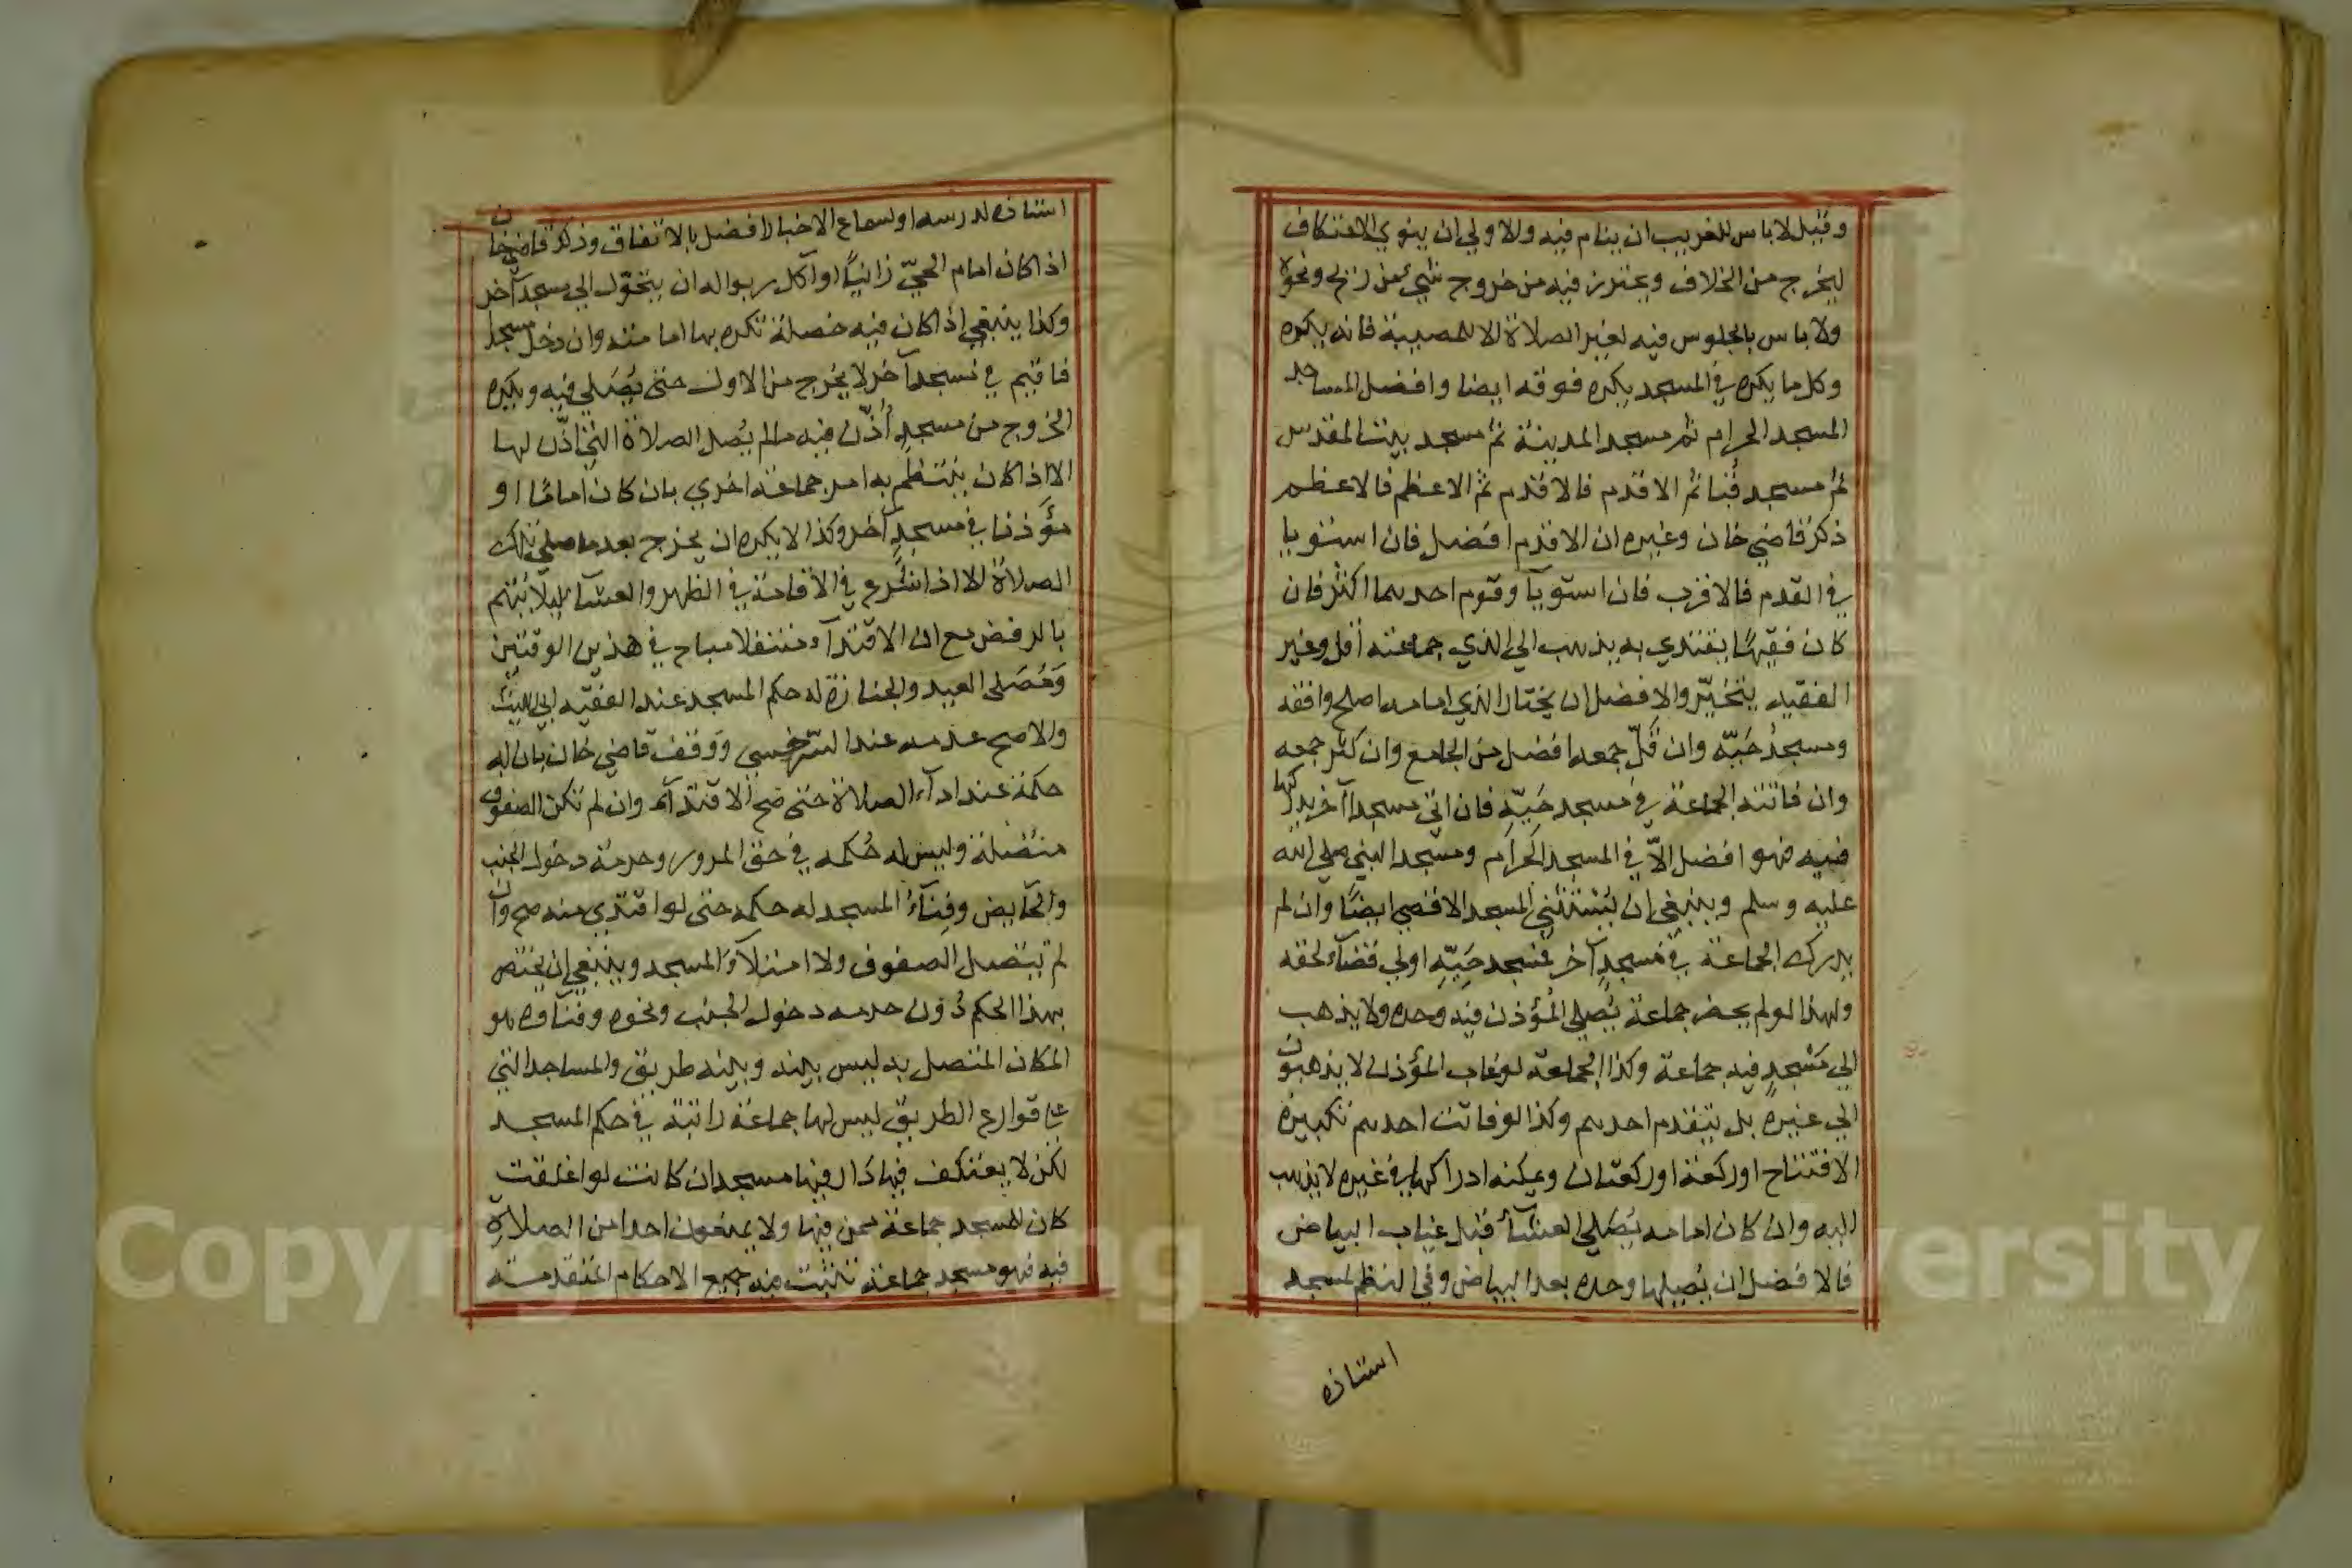 وقيل لا باس للغريب ان ينام فيه والاولي ان ينوي الاعتكاف
ليخرج من الخلاف ويحترز فيه من خروج شيء من ريح ونحوه
ولا باس بالجلوس فيه لغير الصلاة الا للمصيبة فانه يكره
وكل ما يكره في المسجد يكره فوقه ايضا وافضل المساجد
المسجد الحرام ثم مسجد المدينة ثم مسجد بيت المقدس
ثم مسجد قبا ثم الاقدم فالاقدم ثم الاعظم فالاعظم
ذكر قاضي خان وغيره ان الاقدم افضل فان استويا
في القدم فالاقرب فان استويا وقوم احدهما اكثر فان
كان فقيها يقتدي به يذهب الي الذي جماعته اقل وغير
الفقيه يتخيّر والافضل ان يختار الذي امامه اصلح وافقه
ومسجد حيّه وان قلّ جمعه افضل من الجامع وان كثر جمعه
وان فاتته الجماعة في مسجد حيّه فان اتي مسجدا آخر يدركها
فيه فهو افضل الاّ في المسجد الحرام ومسجد النبي صلي الله
عليه وسلم وينبغي ان يستثني المسجد الاقصي ايضا وان لم
يدرك الجماعة في مسجد آخر فمسجد حيّه اولي قضآء لحقه
ولهذا لو لم يحضر جماعة يُصلي المؤذن فيه وحده ولا يذهب
الي مسجد فيه جماعة وكذا الجماعة لو غاب المؤذن لا يذهبون
الي غيره بل يتقدم احدهم وكذا لو فاتت احدهم تكبيرة
الافتتاح او ركعة او ركعتان ويمكنه ادراكها في غيره لا يذهب
اليه وان كان امامه يُصلي العشآء قبل غياب البياض
فالافضل ان يُصليها وحده بعد البياض وفي النظم مسجد
استاذه
استاذه لدرسه او لسماع الاخبار افضل بالاتفاق وذكر قاضي خان
اذا كان امام الحيّ زانيًا او آكل ربوا له ان يتحوّل الي مسجد آخر
وكذا ينبغي اذا كان فيه خصلة تكره بها امامته وان دخل مسجدا
فاقيم في مسجد آخر لا يخرج من الاول حتى يُصَلي فيه ويكره
الخروج من مسجد أُذّن فيه ما لم يُصل الصلاة التي اذّن لها
الا اذا كان ينتظم به امر جماعة اخري بان كان امامًا او
مؤذنا في مسجد آخر وكذا لا يكره ان يخرج بعد ما صلي تلك
الصلاة الا اذا شُرع في الاقامة في الظهر والعشآء ليلا يتهم
بالرفض مع ان الاقتدآء متنفلا مباح في هذين الوقتين
وَمُصَلى العيد والجنازة له حكم المسجد عند الفقيه ابي الليث
والاصح عدمه عند السّرخسي ووقف قاضي خان بان له
حكمه عند ادآء الصلاة حتى صح الاقتدآء وان لم تكن الصفوف
متصلة وليس له حُكمه في حق المرور وحرمة دخول الجنب
والحآيض وفِنآءُ المسجد له حكمه حتى لو اقتدي منه صح وان
لم تتصل الصفوف ولا امتلآء المسجد وينبغي ان يختص
بهذا الحكم دُون حرمه دخول الجنب ونحوه وفنآوه هو
المكان المتصل به ليس بينه وبينه طريق والمساجد التي
علي قوارع الطريق ليس لها جماعة راتبة في حكم المسجد
لكن لا يعتكف فيها دَار فيها مسجد ان كانت لو اغلقت
كان للمسجد جماعة ممن فيها ولا يمنعون احدا من الصلاةِ
فيه فهو مسجد جماعة تثبت فيه جميع الاحكام المتقدمة